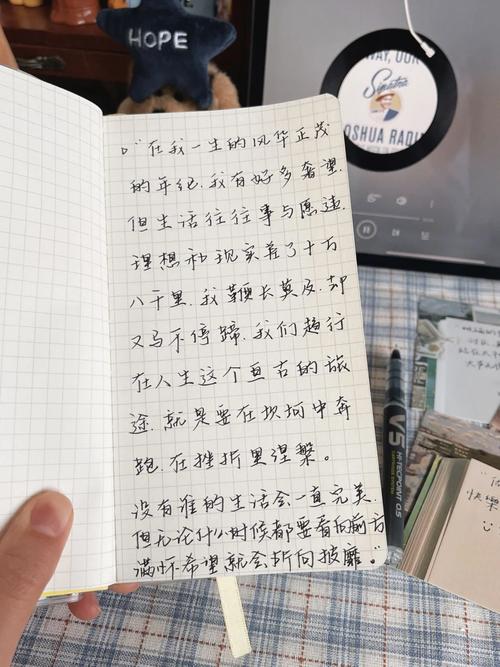 HOPE
WAY, OUR
Sinatra
OSHUA RADI
“在我一生的风华正茂
的年纪.我有好多奢望.
但生活往往事与愿违.
理想和现实差了十万
八千里.我鞭长莫及.却
又马不停蹄.我们趟行
在人生这个亘古的旅
途.就是要在坎坷中奔
跑.在挫折里涅槃。
没有谁的生活会一直完美.
但无论什么时候都要看向前方
满怀希望就会所向披靡。”
V5
HI-TECPOINT 0.5
快樂